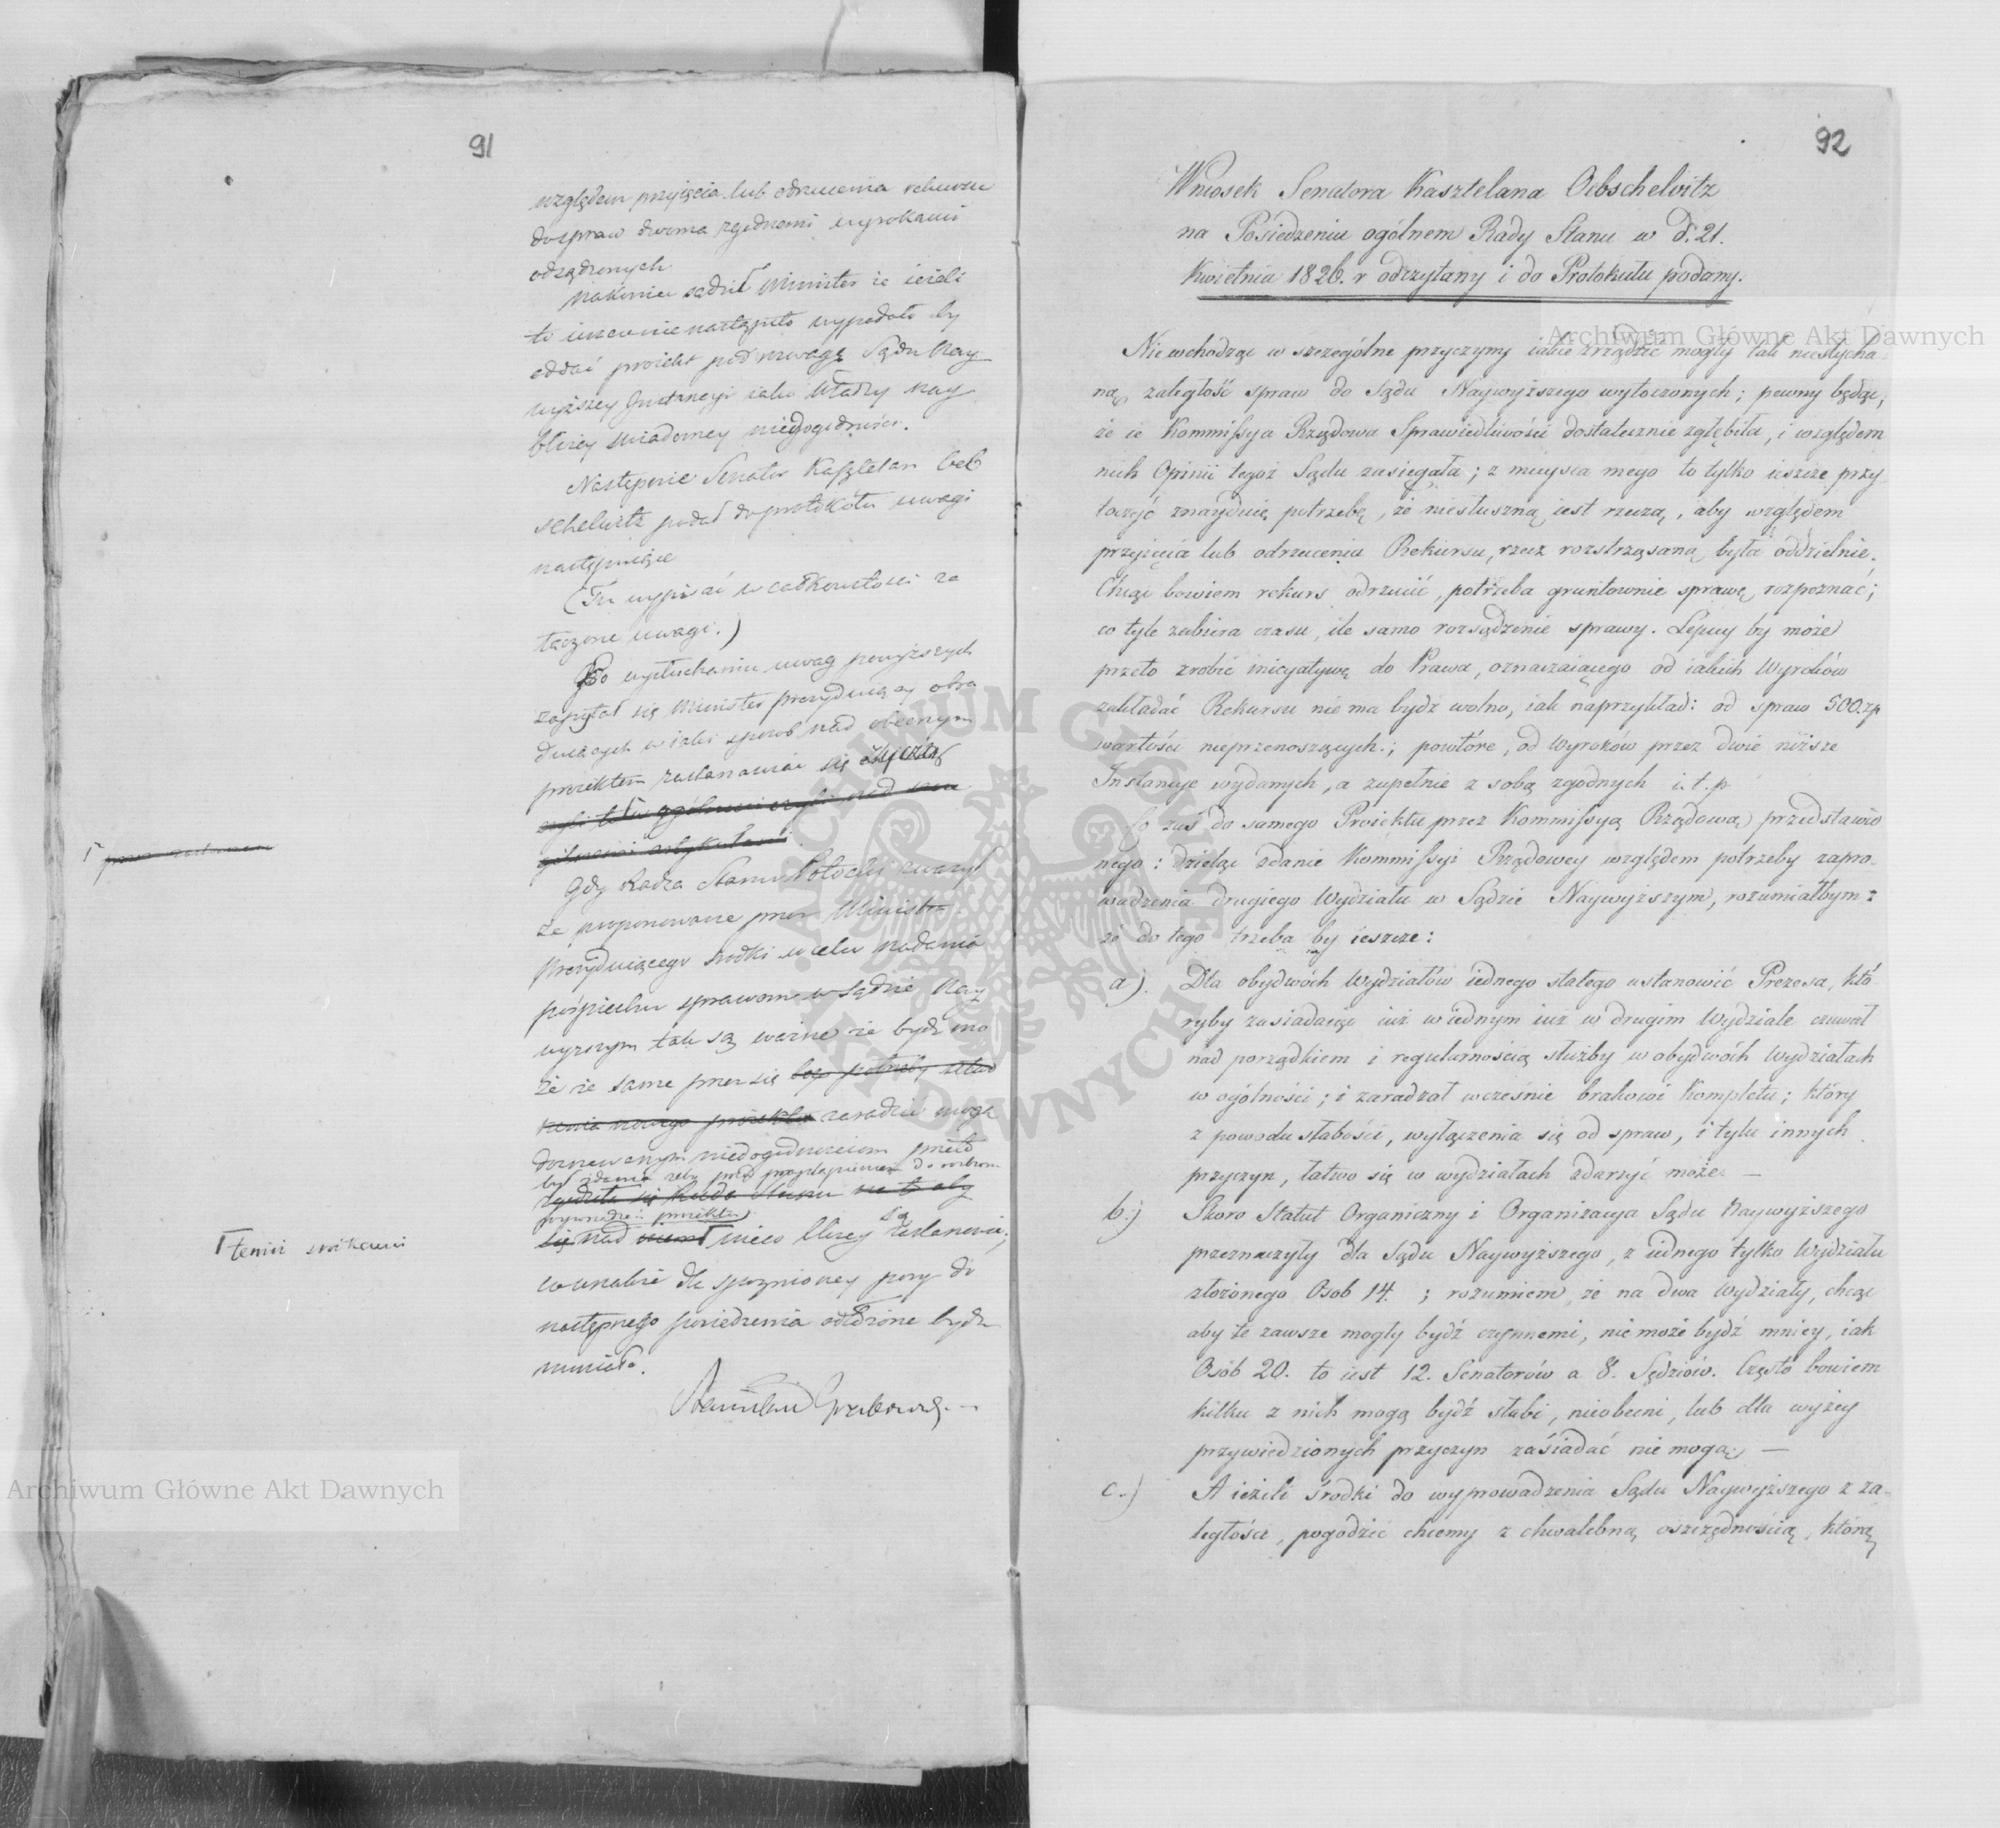 91
względem przyięcia lub odrzucenia rekursu
do spraw dwoma zgodnemi wyrokami
odsądzonych
Nakoniec sądził Minister że ieżeli
to nastąpiło wypadało by
oddać proiekt pod uwagę Sądu Nay
wyższey Instancyi iako Władzy nay
bliżey świadomey niedogodności.
Następnie Senator Kasztelan Oeb
schelwitz podał do protokółu uwagi
następuiące
(Tu wypisać w całkowitości za
łączone uwagi.)
Po wysłuchaniu uwag powyższych
zapytał się Minister prezyduiący obra
duiących w iaki sposób nad obecnym
proiektem zastanawiać się życzą
czyli to w ogólności czyli nad szcze
gólnemi artykułami
Gdy Radca Stanu Potocki zważył
że proponowane przez Ministra
Prezyduiącego środki w celu nadania
pośpiechu sprawom w Sądzie Nay
wyższym tak są ważne że bydź mo
że że same przez się bez potrzeby
nowego proiektu zaradzić mogą
niedogodnościom przeto
był zdania żeby przed przystąpieniem do rozbioru
zgodziła się Rada Stanu na to aby
proiektu
się nad niemi nieco bliżey zastanowić;
temi środkami
co wszakże dla spóźnioney pory do
następnego posiedzenia odłożone bydź
musiało.
Stanisław Grabowski
92
Wniosek Senatora Kasztelana Oebschelwitz
na Posiedzeniu ogólnem Rady Stanu w d. 21.
Kwietnia 1826. r odczytany i do Protokułu podany.
Archiwum Główne Akt Dawnych
Nie wchodząc w szczególne przyczyny iakie zrządzić mogły tak niesłycha-
ną zaległość spraw do Sądu Naywyższego wytoczonych; pewny będąc,
że ie Kommissya Rządowa Sprawiedliwości dostatecznie zgłębiła, i względem
nich Opinii tegoż Sądu zasięgała; z mieysca mego to tylko ieszcze przy
toczyć znayduię potrzebę, że niesłuszną iest rzeczą, aby względem
przyięcia lub odrzucenia Rekursu, rzecz roztrząsaną była oddzielnie.
Chcąc bowiem rekurs odrzucić, potrzeba gruntownie sprawę rozpoznać;
co tyle zabiera czasu, ile samo rozsądzenie sprawy. Lepiey by może
przeto zrobić inicyatywę do Prawa, oznaczaiącego od iakich Wyroków
zakładać Rekursu nie ma bydź wolno, iak naprzykład: od spraw 500. zp
wartości nieprzenoszących.; powtóre, od Wyroków przez dwie niższe
Instancye wydanych, a zupełnie z sobą zgodnych i. t. p
Co zaś do samego Proiektu przez Kommissyą Rządową przedstawio
nego: dzieląc zdanie Kommissyi Rządowey względem potrzeby zapro-
wadzenia drugiego Wydziału w Sądzie Naywyższym, rozumiałbym:
że do tego trzeba by ieszcze:
a). Dla obydwóch Wydziałów iednego stałego ustanowić Prezesa, któ-
ryby zasiadaiąc iuż w iednym iuż w drugim Wydziale czuwał
nad porządkiem i regularnością służby w obydwóch Wydziałach
w ogólności; i zaradzał wcześnie brakowi Kompletu; który
z powodu słabości, wyłączenia się od spraw, i tylu innych
przyczyn, łatwo się w wydziałach zdarzyć może. —
b.) Skoro Statut Organiczny i Organizacya Sądu Naywyższego
przeznaczyły dla Sądu Naywyższego, z iednego tylko Wydziału
złożonego Osób 14. ; rozumiem, że na dwa Wydziały, chcąc
aby te zawsze mogły bydź czynnemi, nie może bydź mniey, iak
Osób 20. to iest 12. Senatorów a 8. Sędziów. Często bowiem
kilku z nich mogą bydź słabi, nieobecni, lub dla wyżey
przywiedzionych przyczyn zasiadać nie mogą; —
c.) A ieżeli środki do wyprowadzenia Sądu Naywyższego z za-
ległości, pogodzić chcemy z chwalebną oszczędnością, którą
Archiwum Główne Akt Dawnych
ARCHIWUM GŁÓWNE AKT DAWNYCH